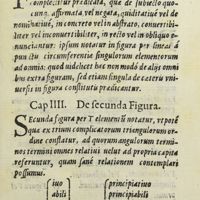 complectitur prædicata, quæ de subiecto quo-
cunq; affirmatiue vel negatiue, quiditatiuè vel de-
nominatiuè, in concreto vel in abstracto, conuerti-
biliter vel inconuertibiliter, in recto vel in obliquo e-
nunciantur. ipsum notatur in figura per lineas à
puncto circumferentiæ singulorum elementorum
ad omnia: quod uidelicet hæc non modo de alijs omni
bus extra figuram, sed etiam singula de cæteris vni-
uersis in figura constitutis prædicantur.
Cap IIII. De secunda Figura.
Secunda figura per T elementū notatur, reposi
ta ex trium complicatorum triangulorum or-
dine constatur, ad quorum angulorum termi-
nos termini omnes relatiui uelut ad propria capita
referuntur, quam sanè relationem contemplari
possumus.
iuo principiatiuo
abili principiabili